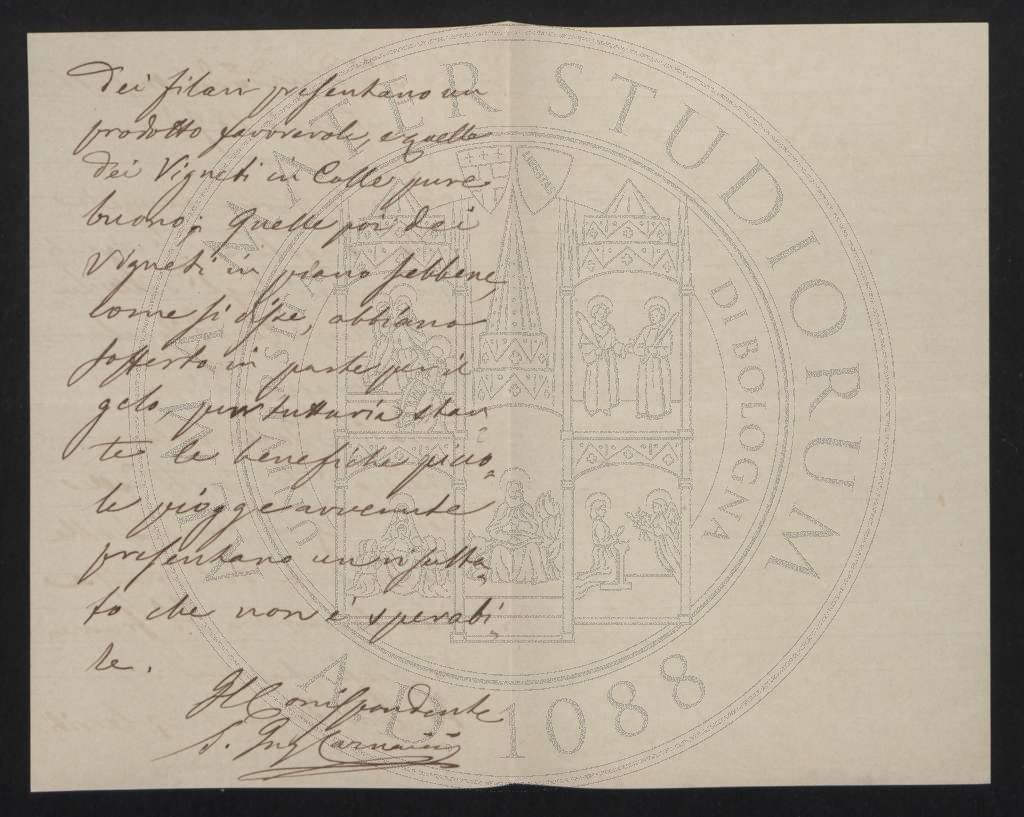 dei filari presentano un
prodotto favorevole, e quello
dei Vigneti in Colle pure
buono; Quello poi dei
Vigneti in piano sebbene,
come si disse, abbiano
sofferto in parte per il
gelo, pur tuttavia stan
te le benefiche picco
le piogge avvenute
presentano un risulta
to che non è sperabi
le.
Il Corrispondente
S. Ing
ALMA MATER STUDIORUM
A.D. 1088
UNIVERSITÀ DI BOLOGNA
LIBERTAS